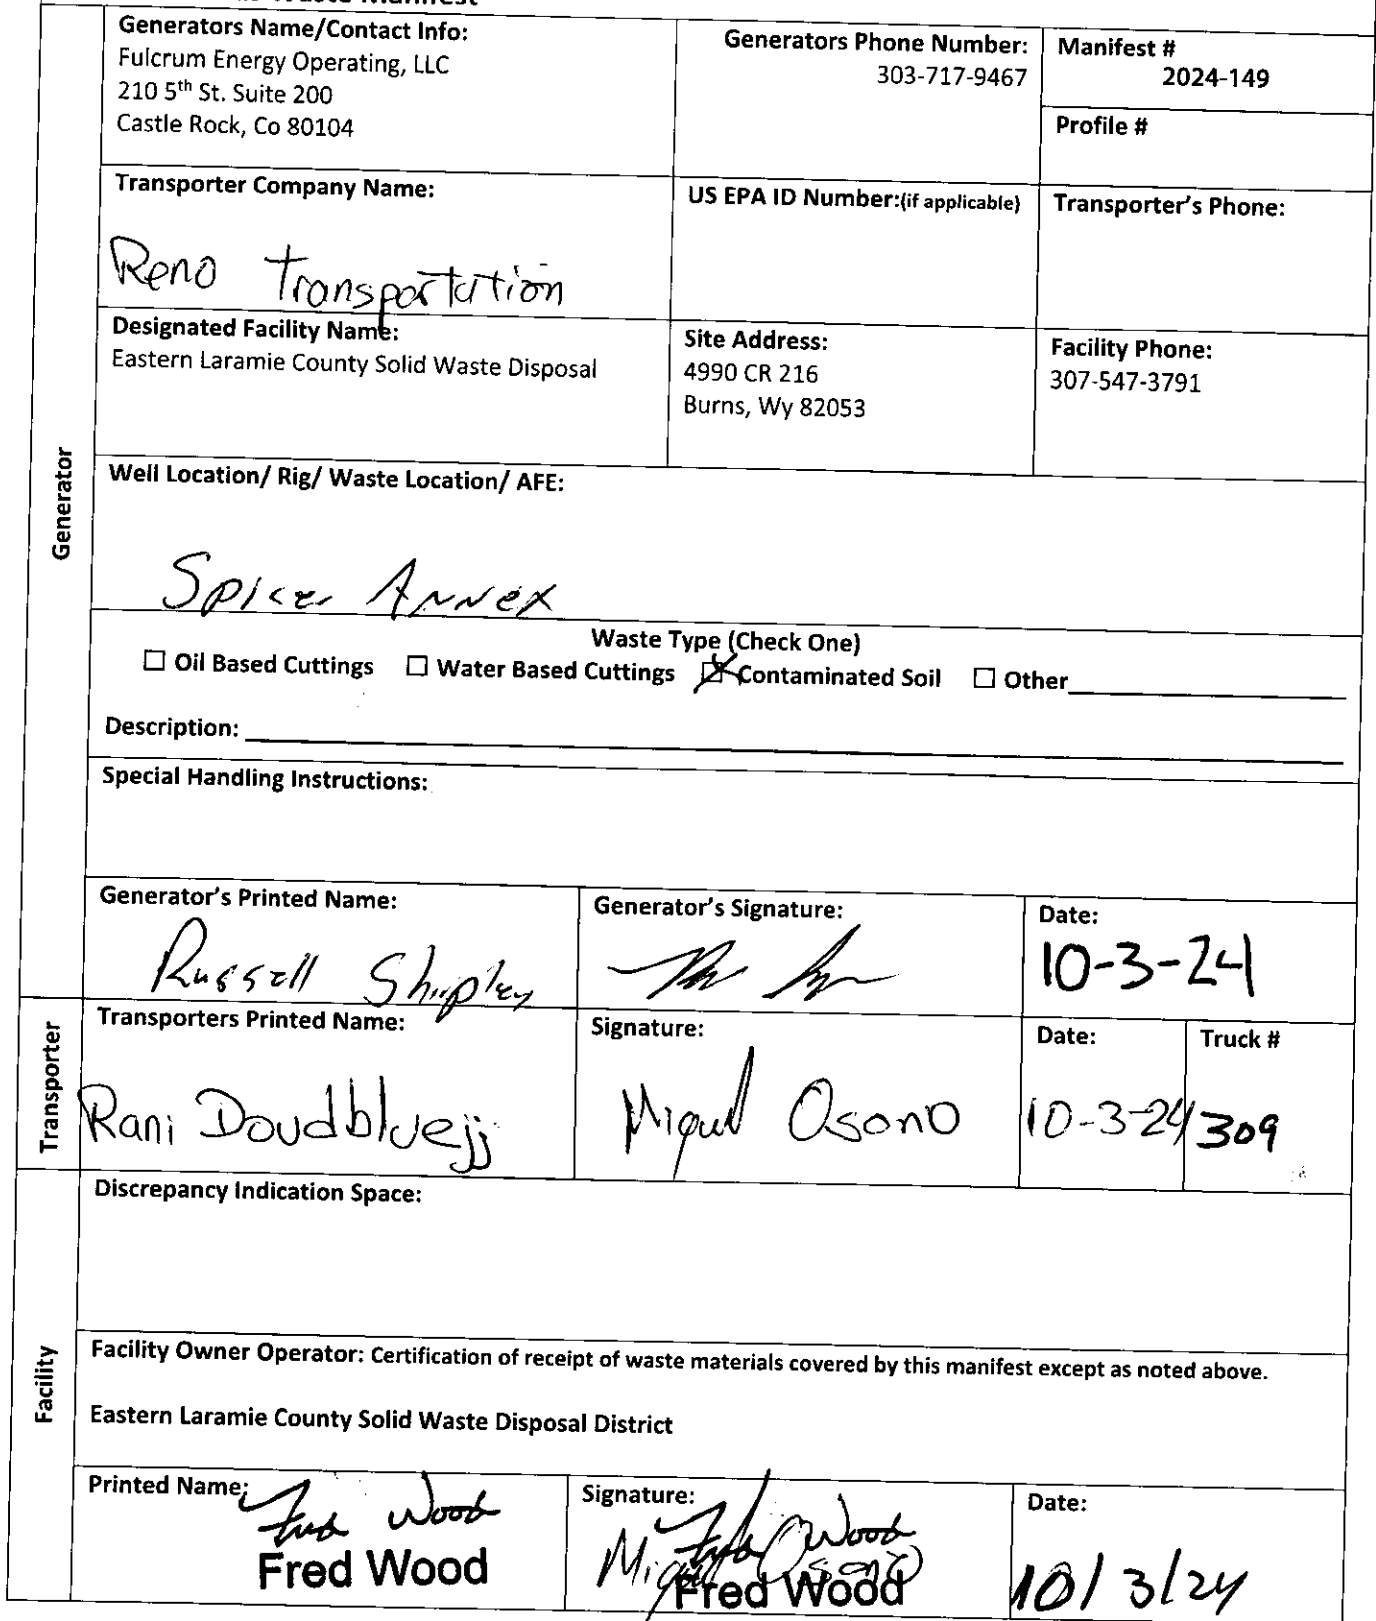 Waste Manifest
Generators Name/Contact Info:
Fulcrum Energy Operating, LLC
210 5th St. Suite 200
Castle Rock, Co 80104
Generators Phone Number:
303-717-9467
Manifest #
2024-149
Profile #
Transporter Company Name:
Reno Transportation
US EPA ID Number:(if applicable)
Transporter's Phone:
Designated Facility Name:
Eastern Laramie County Solid Waste Disposal
Site Address:
4990 CR 216
Burns, Wy 82053
Facility Phone:
307-547-3791
Generator
Well Location/ Rig/ Waste Location/ AFE:
Spicer Annex
Waste Type (Check One)
☐ Oil Based Cuttings ☐ Water Based Cuttings ☒ Contaminated Soil ☐ Other
Description:
Special Handling Instructions:
Generator's Printed Name:
Russell Shipley
Generator's Signature:
Date:
10-3-24
Transporter
Transporters Printed Name:
Rani
Signature:
Miguel Osono
Date:
10-3-24
Truck #
309
Facility
Discrepancy Indication Space:
Facility Owner Operator: Certification of receipt of waste materials covered by this manifest except as noted above.
Eastern Laramie County Solid Waste Disposal District
Printed Name:
Fred Wood
Fred Wood
Signature:
Fred Wood
Miguel Osono
Fred Wood
Date:
10/3/24